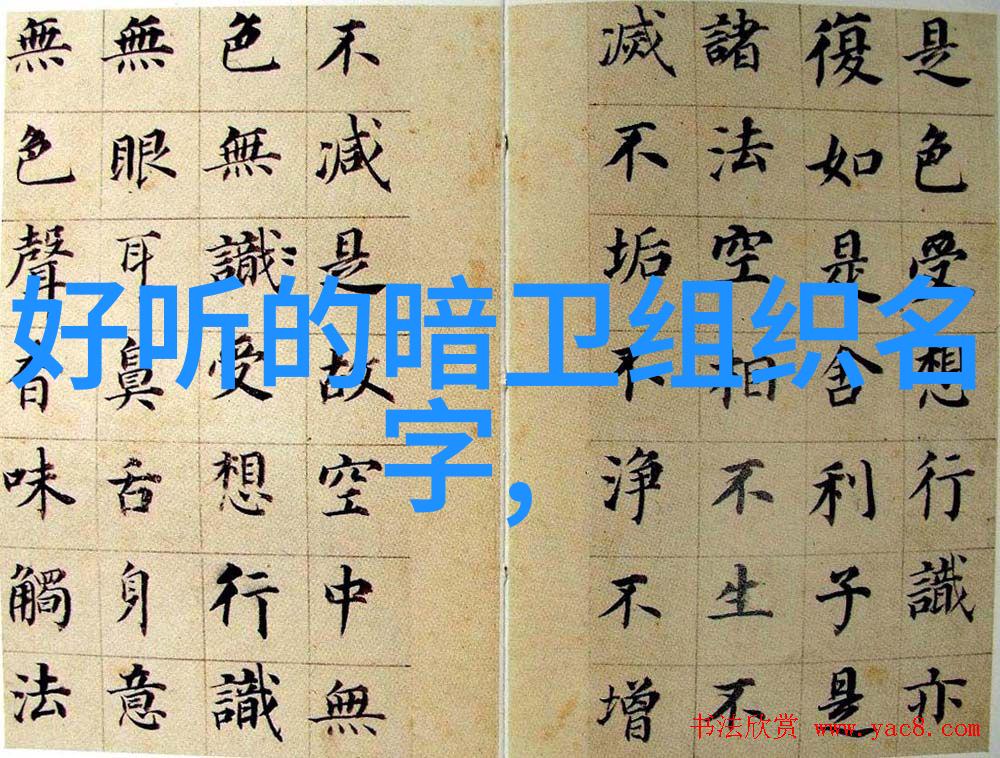 是色受想行識亦
復如是舍利子是
諸法空相不生不
滅不垢不淨不增
不減是故空中無
色無識受想行識
無眼耳鼻舌身意
無色聲香味觸法
好听的暗卫组织名
字，
书法欣赏 www.yac8.com